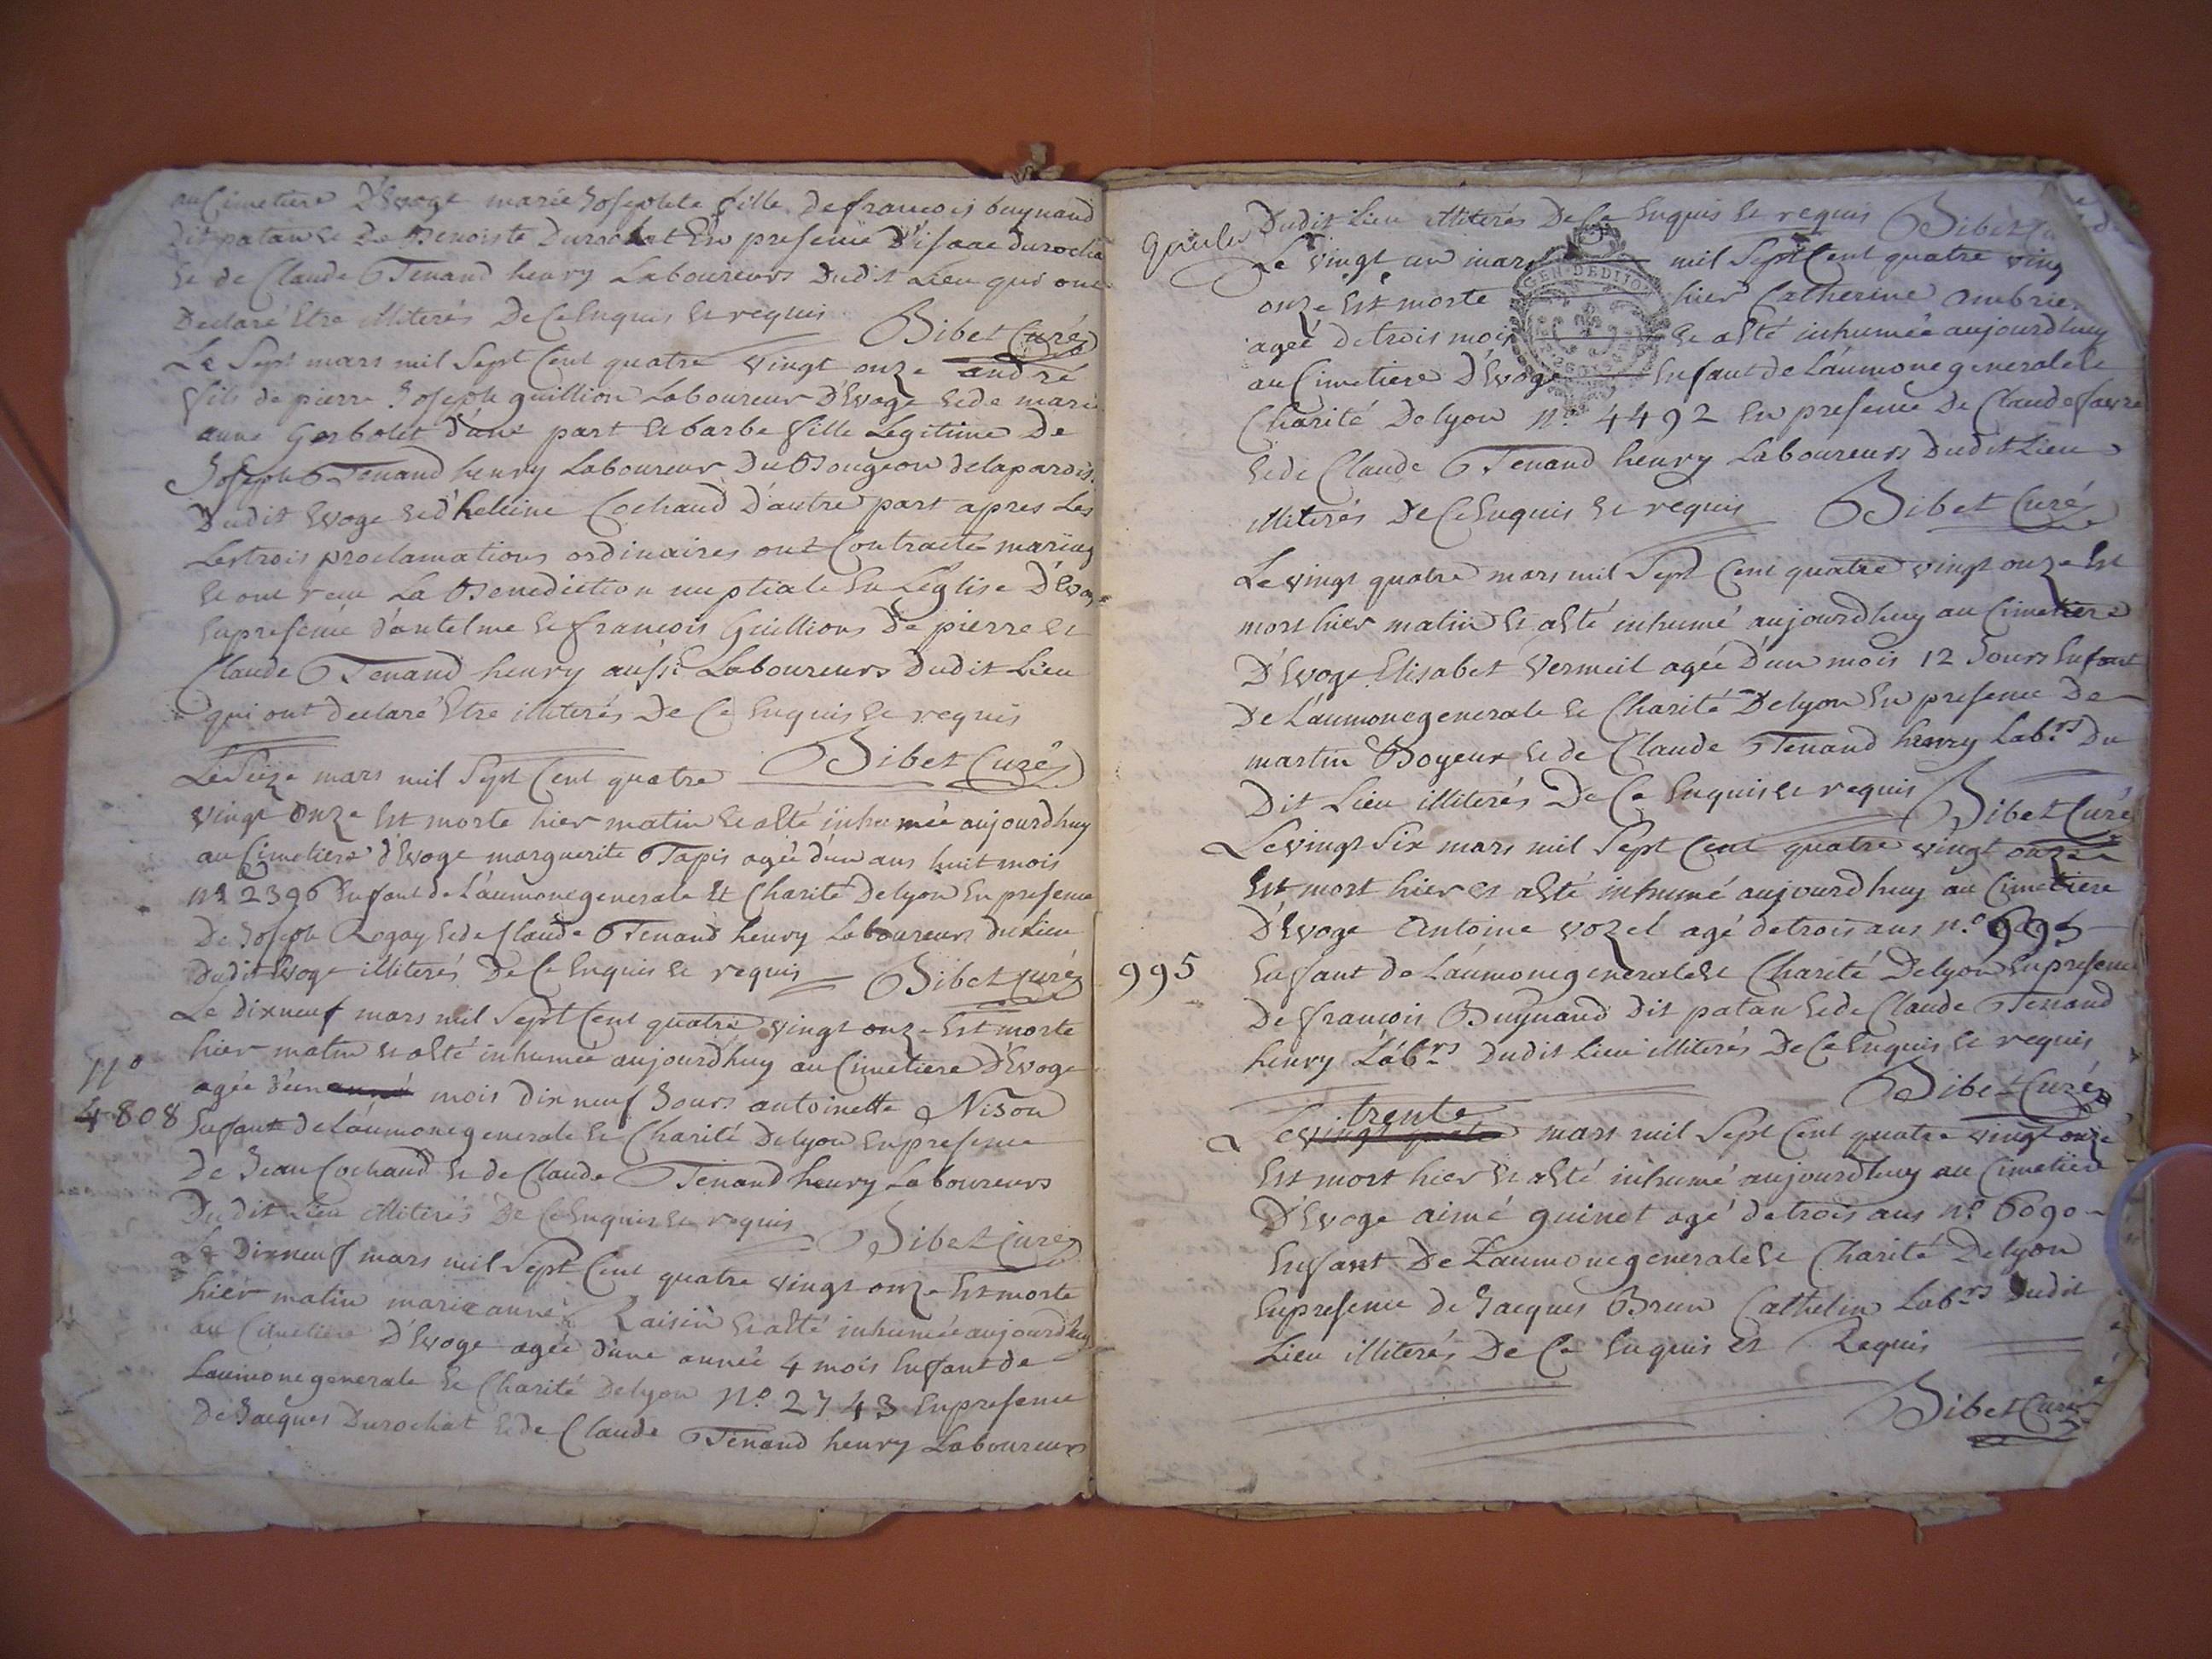 au Cimetiere D'Evoge marie Josephte fille de francois buynand
Dit patan et De Benoiste Durochat En presence D'isaac durocha
et de Claude Tenand henry Laboureurs Dudit Lieu qui ont
Declaré Etre illiterés De Ce Enquis et requis Bibet Curé
Le Sept mars mil Sept Cent quatre vingt onze andré
fils de pierre Joseph guillion Laboureur D'Evoge et de marie
anne Gerbolet d'une part et barbe fille Legitime De
Joseph Tenand henry Laboureur Du Bougeon de la parois
Dudit Evoge et d'heleine Cochand D'autre part apres Les
Les trois proclamations ordinaires ont Contracté mariag
et ont recu La Benediction nuptiale En L'eglise D'Evoge
En presence d'antelme et francois Guillions De pierre et
Claude Tenand henry aussi Laboureurs Dudit Lieu
qui ont declaré Etre illiterés De Ce Enquis et requis
Le Seize mars mil Sept Cent quatre Bibet Curé
vingt onze Est morte hier matin et a Eté inhumée aujourdhuy
au Cimetiere d'Evoge marguerite Tapis agée d'un ans huit mois
n.º 2396 Enfant de L'aumone generale et Charité De lyon En presence
De Joseph Rogay et de Claude Tenand henry Laboureurs du Lieu
Dudit Evoge illiterés De Ce Enquis et requis Bibet Curé
Le dixneuf mars mil Sept Cent quatre vingt onze Est morte
hier matin et a Eté inhumée aujourd'huy au Cimetiere D'Evoge
nº agée d'un mois dix neuf Jours antoinette Nison
4808 Enfant de L'aumone generale et Charité De lyon En presence
De Jean Cochand et de Claude Tenand henry Laboureurs
Dudit Lieu illiterés De Ce Enquis et requis Bibet Curé
Le Dixneuf mars mil Sept Cent quatre vingt onze Est morte
hier matin marie anne Raisin et a Eté inhumée aujourdhuy
au Cimetiere D'Evoge agée d'une année 4 mois Enfant de
L'aumone generale et Charité De lyon N.º 2743 En presence
De Jacques Durochat et de Claude Tenand henry Laboureurs
Dudit Lieu illiterés De Ce Enquis et requis Bibet
Le vingt un mars mil Sept Cent quatre ving
GEN. DE DIJON
onze Est morte hier Catherine Ambrie
agée de trois mois et a Eté inhumée aujourdhuy
au Cimetiere D'Evoge Enfant de L'aumone generale et
Charité De lyon N.º 4492 En presence De Claude favre
et de Claude Tenand henry Laboureurs Dudit Lieu
illiterés De Ce Enquis et requis Bibet Curé
Le vingt quatre mars mil Sept Cent quatre vingt onze Est
mort hier matin et a Eté inhumé aujourdhuy au Cimetiere
D'Evoge Elisabet Vermeil agée D'un mois 12 Jours Enfant
De L'aumone generale et Charité De lyon En presence De
martin Boyeux et de Claude Tenand henry Lab.rs Du
Dit Lieu illiterés De Ce Enquis et requis Bibet Curé
Le vingt Six mars mil Sept Cent quatre vingt onze
Est mort hier et a Eté inhumé aujourdhuy au Cimetiere
D'Evoge Antoine vozel agé de trois ans n.º 995
995 Enfant de L'aumone generale et Charité De lyon En presence
De francois Buynand Dit patan et de Claude Tenand
henry Lab.rs Dudit Lieu illiterés De Ce Enquis et requis
Bibet Curé
trente
Le vingt quatre mars mil Sept Cent quatre vingt onze
Est mort hier et a Eté inhumé aujourdhuy au Cimetiere
D'Evoge aimé guinet agé de trois ans n.º 6090
Enfant De L'aumone generale et Charité De lyon
En presence de Jacques Brun Cathelin Lab.rs Dudit
Lieu illiterés De Ce Enquis et Requis
Bibet Curé